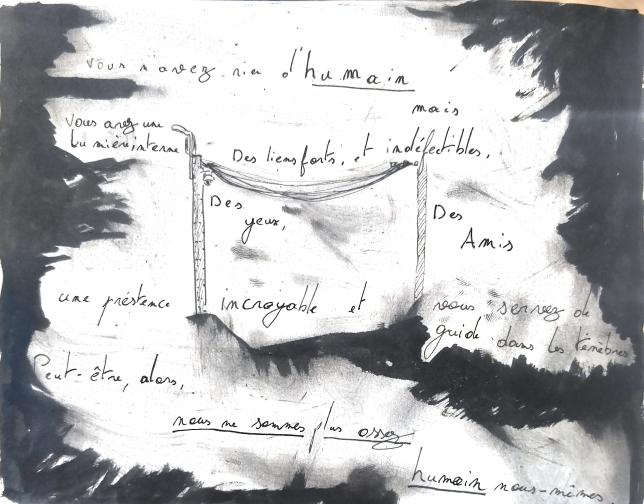 vous n'avez rien d'humain
mais
vous avez une
lumière interne
Des liens forts, et indéfectibles,
Des
yeux,
Des
Amis
une préstence incroyable et vous servez de
guide dans les ténèbres
Peut-être, alors,
nous ne sommes plus assez
humain nous-mêmes.